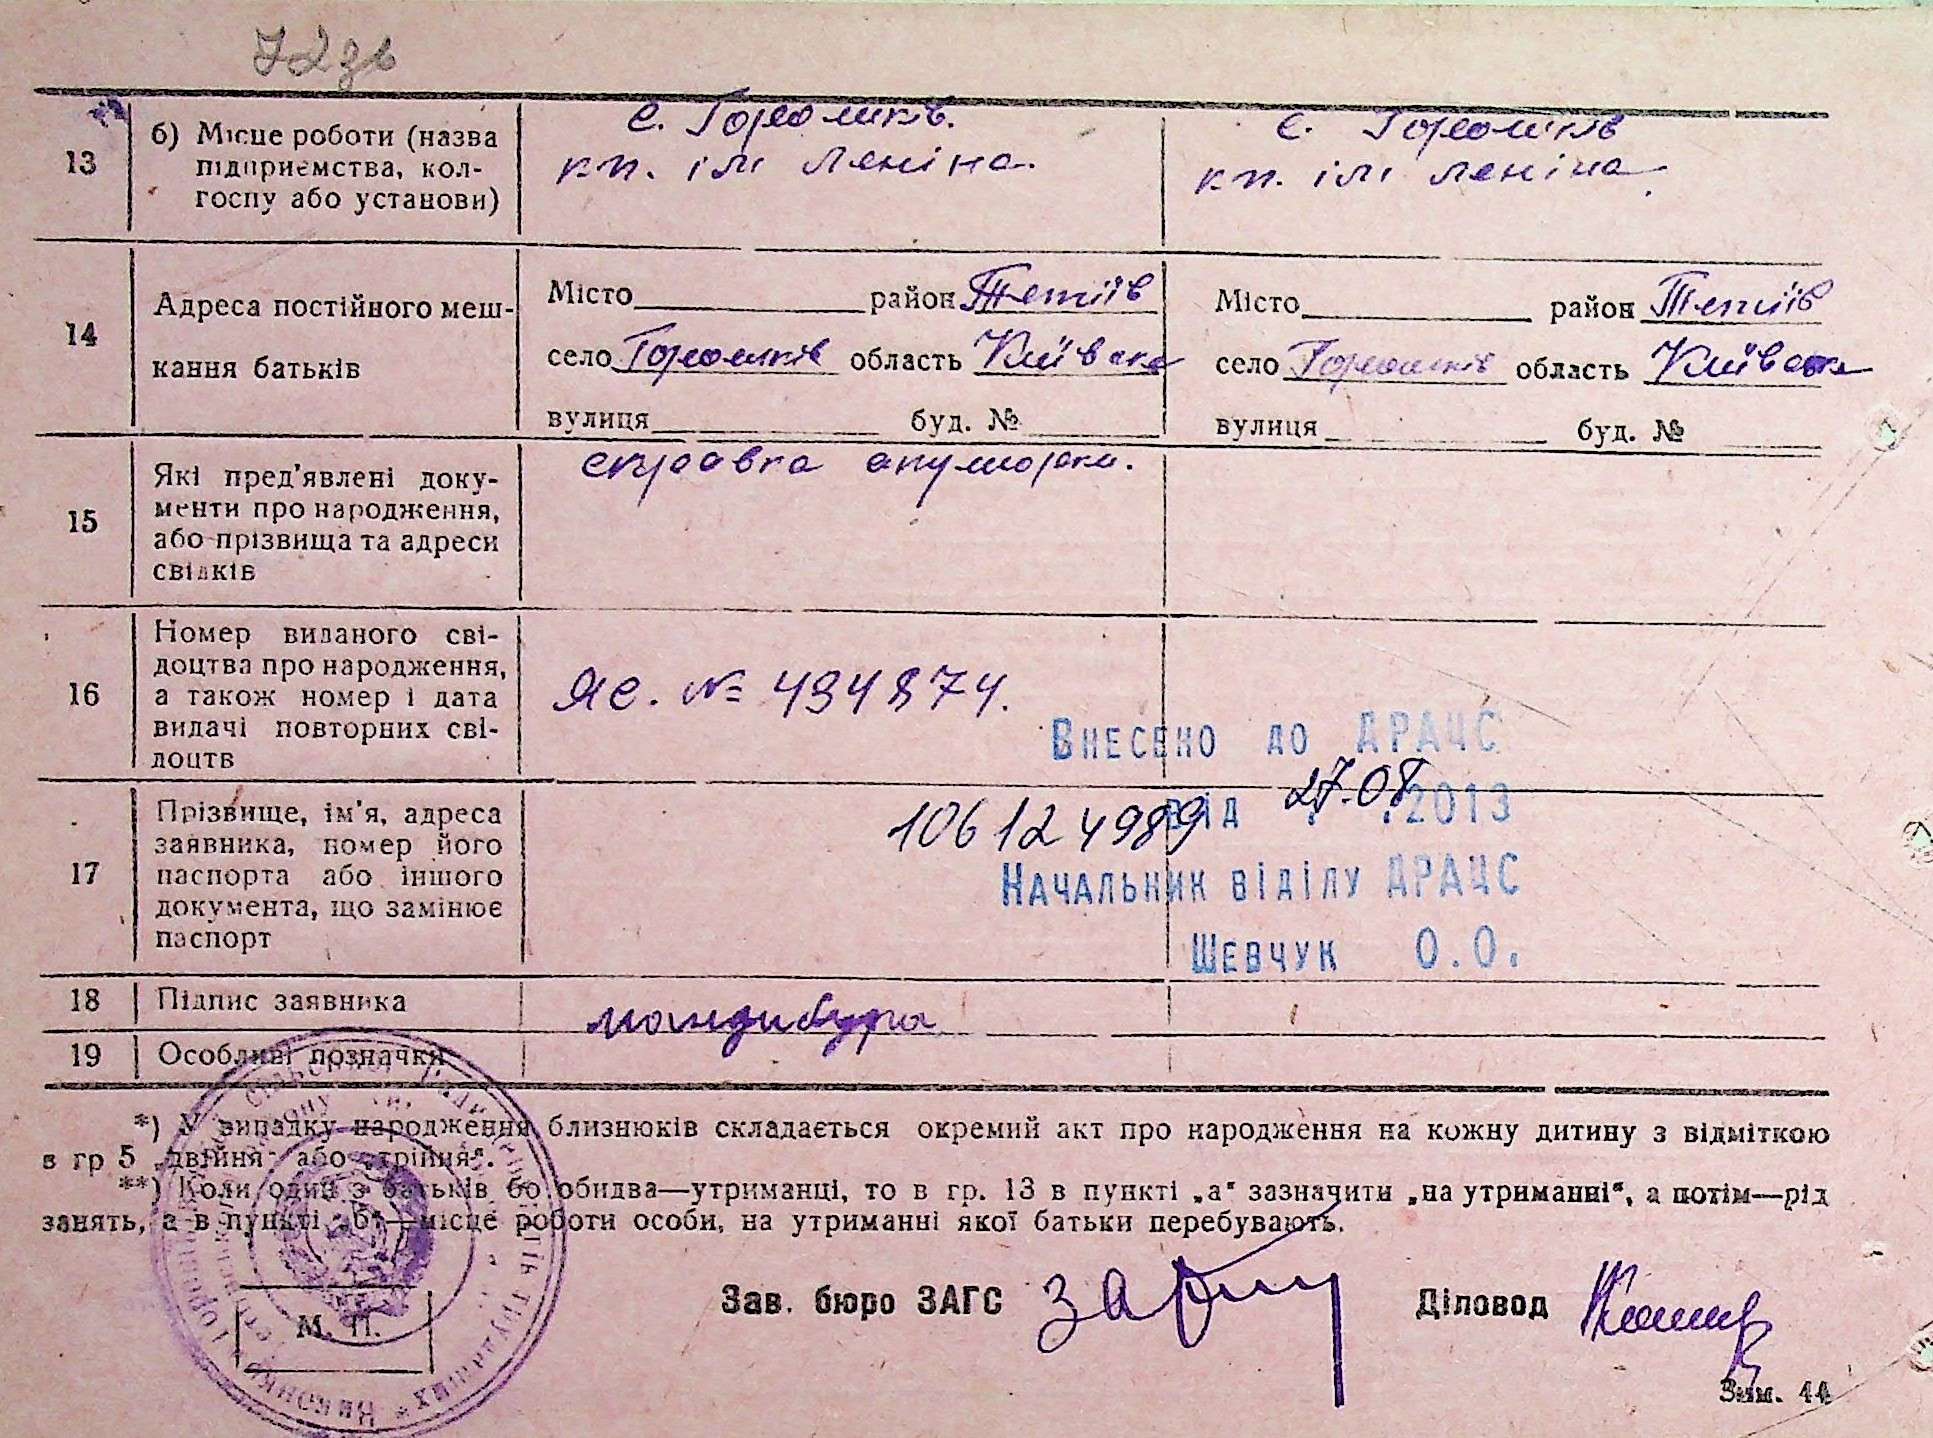 13
б) Місце роботи (назва
підприємства, кол-
госпу або установи)
с. Горошків.
кп. ім Леніна.
с. Горошків
кп. ім Леніна.
14
Адреса постійного меш-
кання батьків
Місто район Тетіїв
село Горошків область Київська
вулиця буд. №
Місто район Тетіїв
село Горошків область Київська
вулиця буд. №
15
Які пред'явлені доку-
менти про народження,
або прізвища та адреси
свідків
справка акушорки.
16
Номер виданого сві-
доцтва про народження,
а також номер і дата
видачі повторних сві-
доцтв
ЯЄ. № 494874.
Внесено до ДРАЦС
106124989 від 27.08.2013
Начальник віділу ДРАЦС
Шевчук О.О.
17
Прізвище, ім'я, адреса
заявника, номер його
паспорта або іншого
документа, що замінює
паспорт
18
Підпис заявника
мандибура
19
Особливі позначки
*) У випадку народження близнюків складається окремий акт про народження на кожну дитину з відміткою
в гр 5 „двійня" або „трійня".
**) Коли один з батьків бо обидва—утриманці, то в гр. 13 в пункті „а" зазначити „на утриманні", а потім—рід
занять, а в пункті „б"—місце роботи особи, на утриманні якої батьки перебувають.
Зав. бюро ЗАГС
Діловод
М. П.
Зам. 44